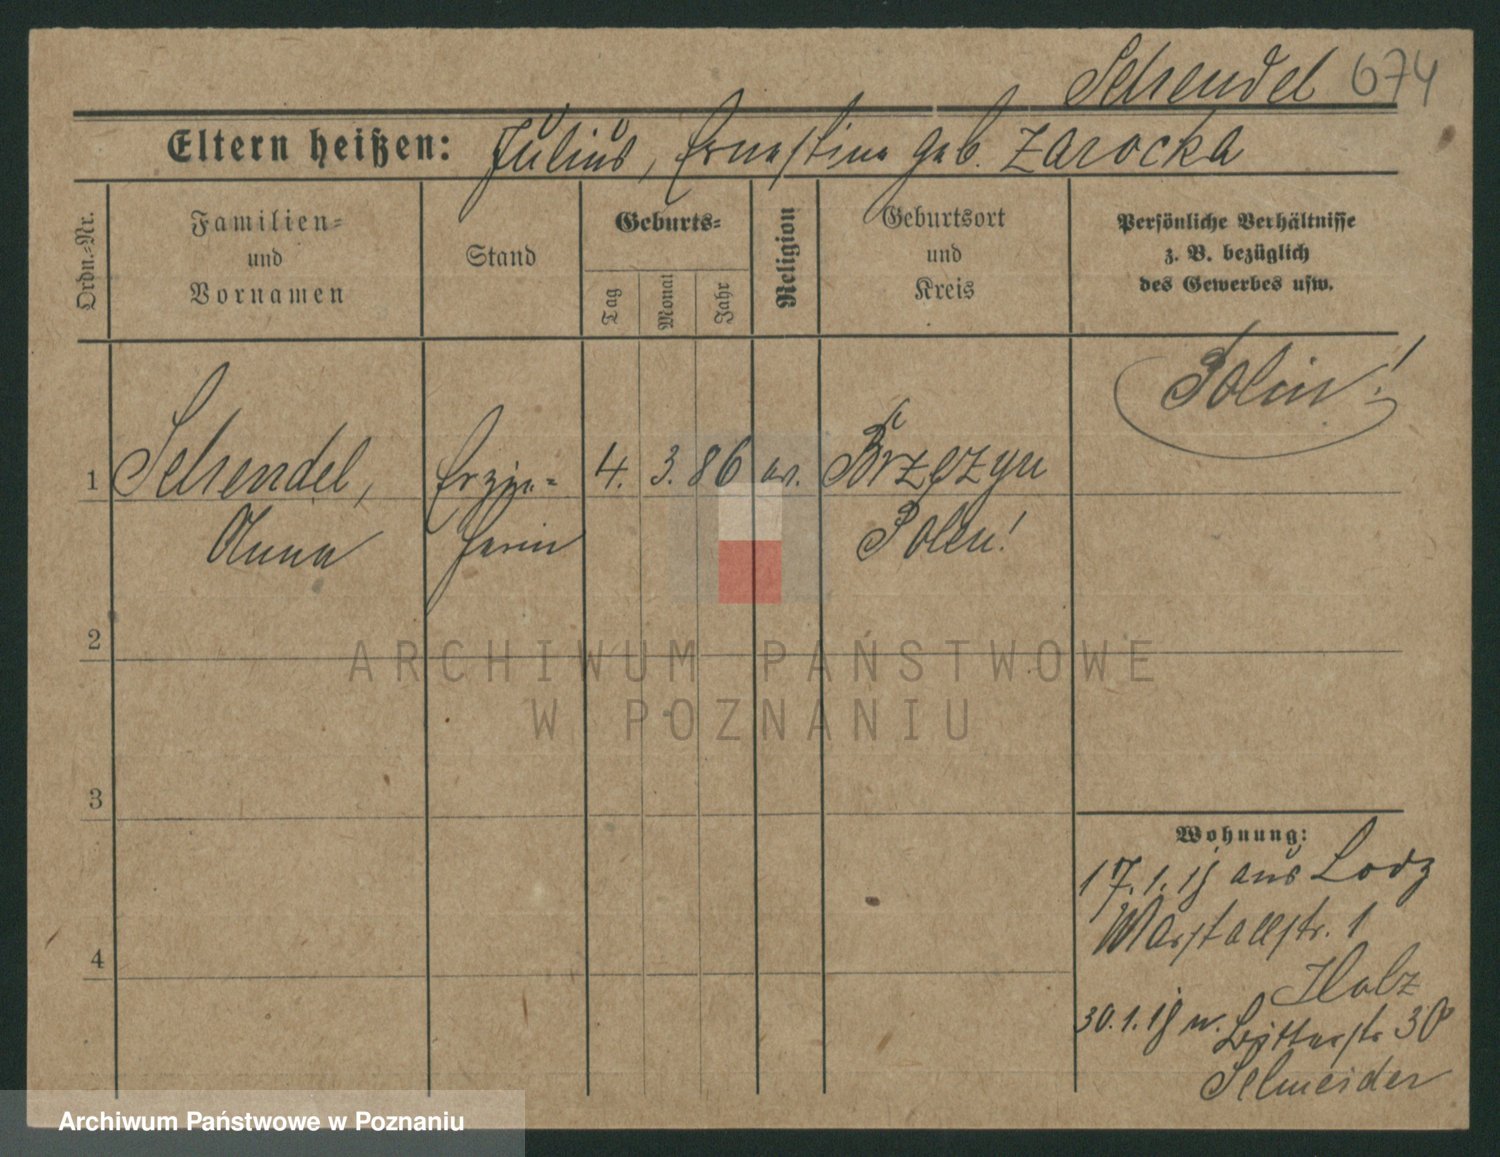 Schendel 674
Eltern heißen: Julius, Ernestine geb. Zarocka
Ordn.-Nr.
Familien-
und
Vornamen
Stand
Geburts-
Tag
Monat
Jahr
Religion
Geburtsort
und
Kreis
Persönliche Verhältnisse
z. B. bezüglich
des Gewerbes usw.
Polin!
1 Schendel, Erzie- 4. 3. 86 ev. Brzezyn
Anna herin Polen!
2
3
4
Wohnung:
17.1.18 aus Lodz
Marstallstr. 1
Holz
30.1.18 n. Ritterstr 30
Schneider
ARCHIWUM PAŃSTWOWE
W POZNANIU
Archiwum Państwowe w Poznaniu